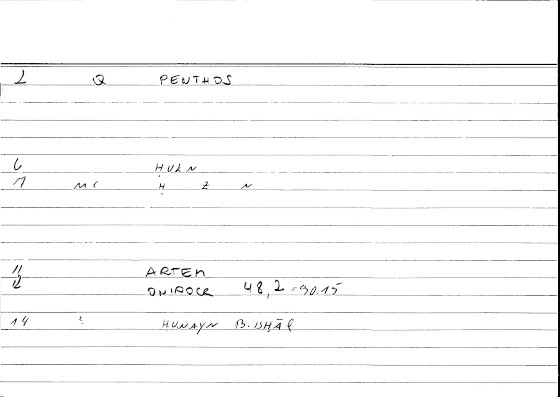 2 Q PENTHOS
6 ḤUZN
7 MC Ḥ Z N
11 ARTEM
12 ONIROCR 48,2 = 90.15
14 : ḤUNAYN B. ISḤĀQ